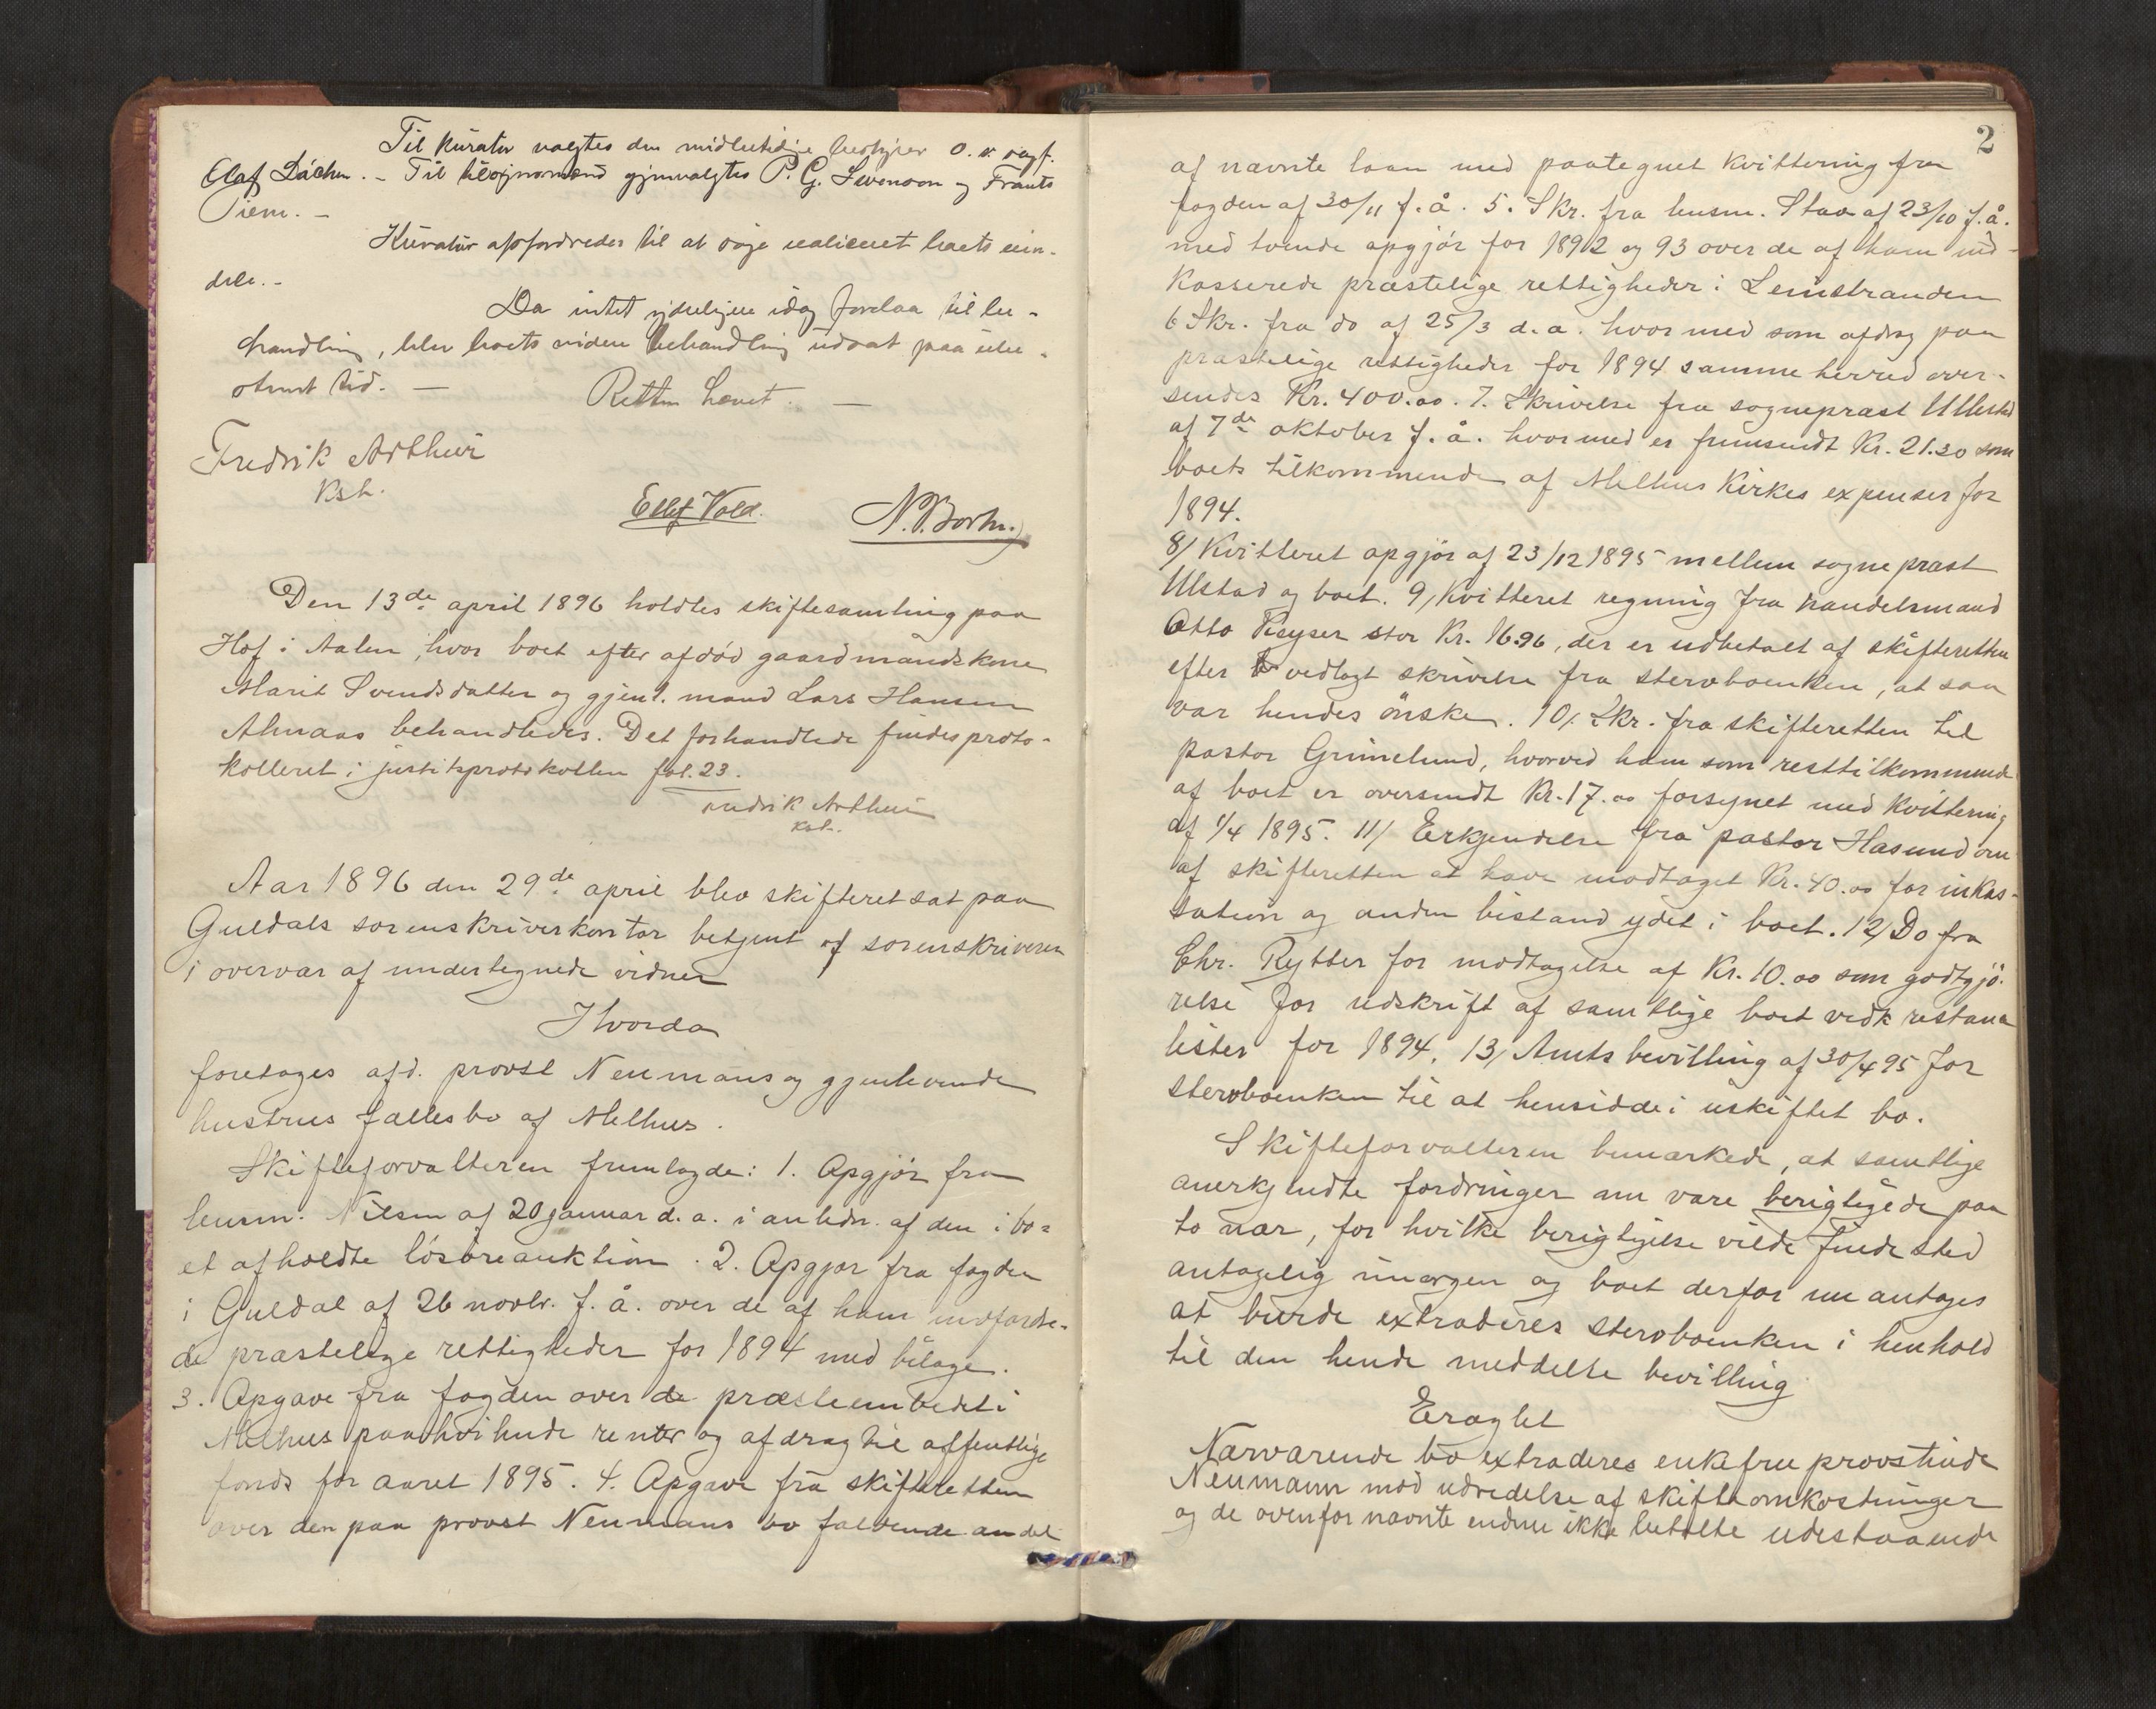 Til kurator valgtes den midlertidige bestyrer o. r. sagf.
Olaf Dáchn. – Til tilsynsmænd gjenvalgtes P. G. Svenson og Frants
Siem. –
Kurator opfordredes til at søge realiseret boets eien-
dele. –
Da intet yderligere idag forelaa til be-
handling, blev boets videre behandling udsat paa ube-
stemt tid. –
Retten hævet. –
Fredrik Arthur
Kst.
Ellef Vold. N. P. Borten.
Den 13de april 1896 holdtes skiftesamling paa
Hof i Aalen, hvor boet efter afdød gaardmandskone
Marit Svendsdatter og gjenl. mand Lars Hansen
Almaas behandledes. Det forhandlede findes proto-
kolleret i justitsprotokollen fol. 23.
Fredrik Arthur
Kst.
Aar 1896 den 29de april blev skifteret sat paa
Guldals sorenskriverkontor betjent af sorenskriveren
i overvær af undertegnede vidner
Hvorda
foretoges afd. provst Neumans og gjenlevende
hustrus fællesbo af Melhus.
Skifteforvalteren fremlagde: 1. Opgjör fra
lensm. Nilsen af 20 januar d. a. i anledn. af den i bo-
et afholdte lösöreauktion. 2. Opgjør fra fogden
i Guldal af 26 novbr. f. å. over de af ham indfordre-
de præstelige rettigheder for 1894 med bilage.
3. Opgave fra fogden over de præsteembedet i
Melhus paahvilende renter og afdrag til offentlige
fonds for aaret 1895. 4. Opgave fra skifteretten
over den paa provst Neumans bo faldende andel
2
af nævnte laan med paategnet kvittering fra
fogden af 30/11 f. å. 5. Skr. fra lensm. Stav af 23/10 f. å.
med tvende opgjör for 1892 og 93 over de af ham ind-
kasserede præstelige rettigheder i Leinstranden
6 Skr. fra do af 25/3 d. a. hvormed som afdrag paa
præstelige rettigheder for 1894 samme herred over-
sendes Kr. 400.00. 7. Skrivelse fra sogneprest Ullestad
af 7de oktober f. å. hvormed er fremsendt Kr. 21.20 som
boets tilkommende af Melhus Kirkes expenser for
1894.
8/ Kvitteret opgjör af 23/12 1895 mellem sogneprast
Ulstad og boet. 9/ Kvitteret regning fra handelsmand
Otto Keyser stor Kr. 16.96, der er udbetalt af skifteretten
efter vedlagt skrivelse fra stervboenken, at saa
var hendes önske. 10/. Skr. fra skifteretten til
pastor Grimelund, hvorved ham som resttilkommende
af boet er oversendt Kr. 17.00 forsynet med kvittering
af 1/4 1895. 11/ Erkjendelse fra pastor Hasund om
af skifteretten at have modtaget Kr. 40.00 for inkas-
sation og anden bistand ydet i boet. 12/ Do fra
Chr. Rytter for modtagelse af Kr. 10.00 som godtgjö-
relse for udskrift af samtlige boet vedk restance
lister for 1894. 13/ Amtsbevilling af 30/4 95 for
stervboenken til at hensidde i uskiftet bo.
Skifteforvalteren bemærkede, at samtlige
anerkjendte fordringer nu vare berigtigede paa
to nær, for hvilke berigtigelse vilde finde sted
antagelig imorgen og boet derfor nu antages
at burde extraderes stervboenken i henhold
til den hende meddelte bevilling
Eragtet
Nærværende bo extraderes enkefru provstinde
Neumann mod udredelse af skifteomkostninger
og de ovenfor nævnte endnu ikke betalte udestaaende